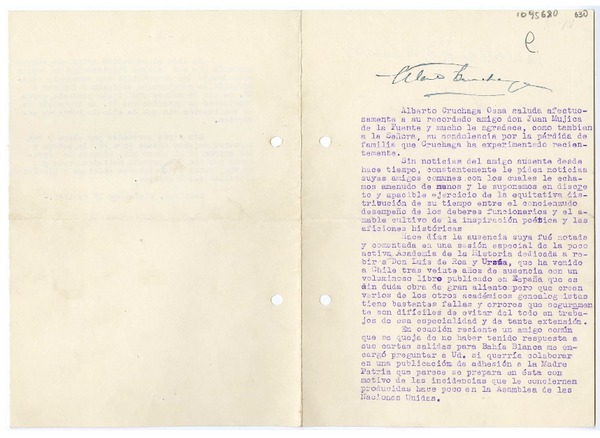 1095680 630
Alberto Cruchaga Ossa saluda afectuo-
samente a su recordado amigo don Juan Mujica
de la Fuente y mucho le agradece, como tambien
a la Señora, su condolencia por la pérdida de
familia que Cruchaga ha experimentado recien-
temente.
Sin noticias del amigo ausente desde
hace tiempo, constantemente le piden noticias
suyas amigos comunes con los cuales le echa-
mos amenudo de menos y le suponemos en discre
to y apacible ejercicio de la equitativa dis-
tribución de su tiempo entre el concienzudo
desempeño de los deberes funcionarios y el a-
mable cultivo de la inspiración poética y las
aficiones históricas
Hace días la ausencia suya fué notada
y comentada en una sesión especial de la poco
activa Academia de la Historia dedicada a re-
bir a Don Luis de Roa y Ursúa, que ha venido
a Chile tras veinte años de ausencia con un
voluminoso libro publicado en España que es
sin duda obra de gran aliento pero que creen
varios de los otros académicos genealogistas
tiene bastantes fallas y errores que seguramen
te son difíciles de evitar del todo en traba-
jos de esa especialidad y de tanta extensión.
En ocasión reciente un amigo común
que se queja de no haber tenido respuesta a
sus cartas salidas para Bahía Blanca me en-
cargó preguntar a Ud. si querría colaborar
en una publicación de adhesión a la Madre
Patria que parece se prepara en ésta con
motivo de las incidencias que le conciernen
producidas hace poco en la Asamblea de las
Naciones Unidas.